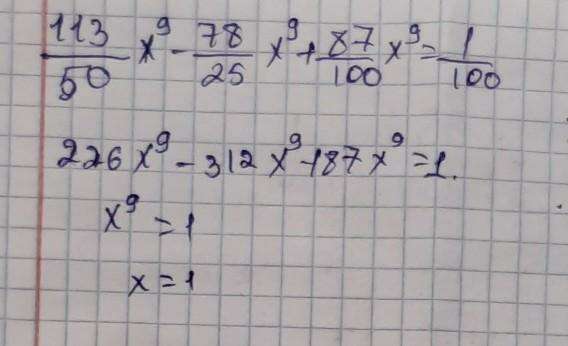 113/50 x⁹ - 78/25 x⁹ + 87/100 x⁹ = 1/100
226x⁹ - 312x⁹ + 87x⁹ = 1.
x⁹ = 1
x = 1